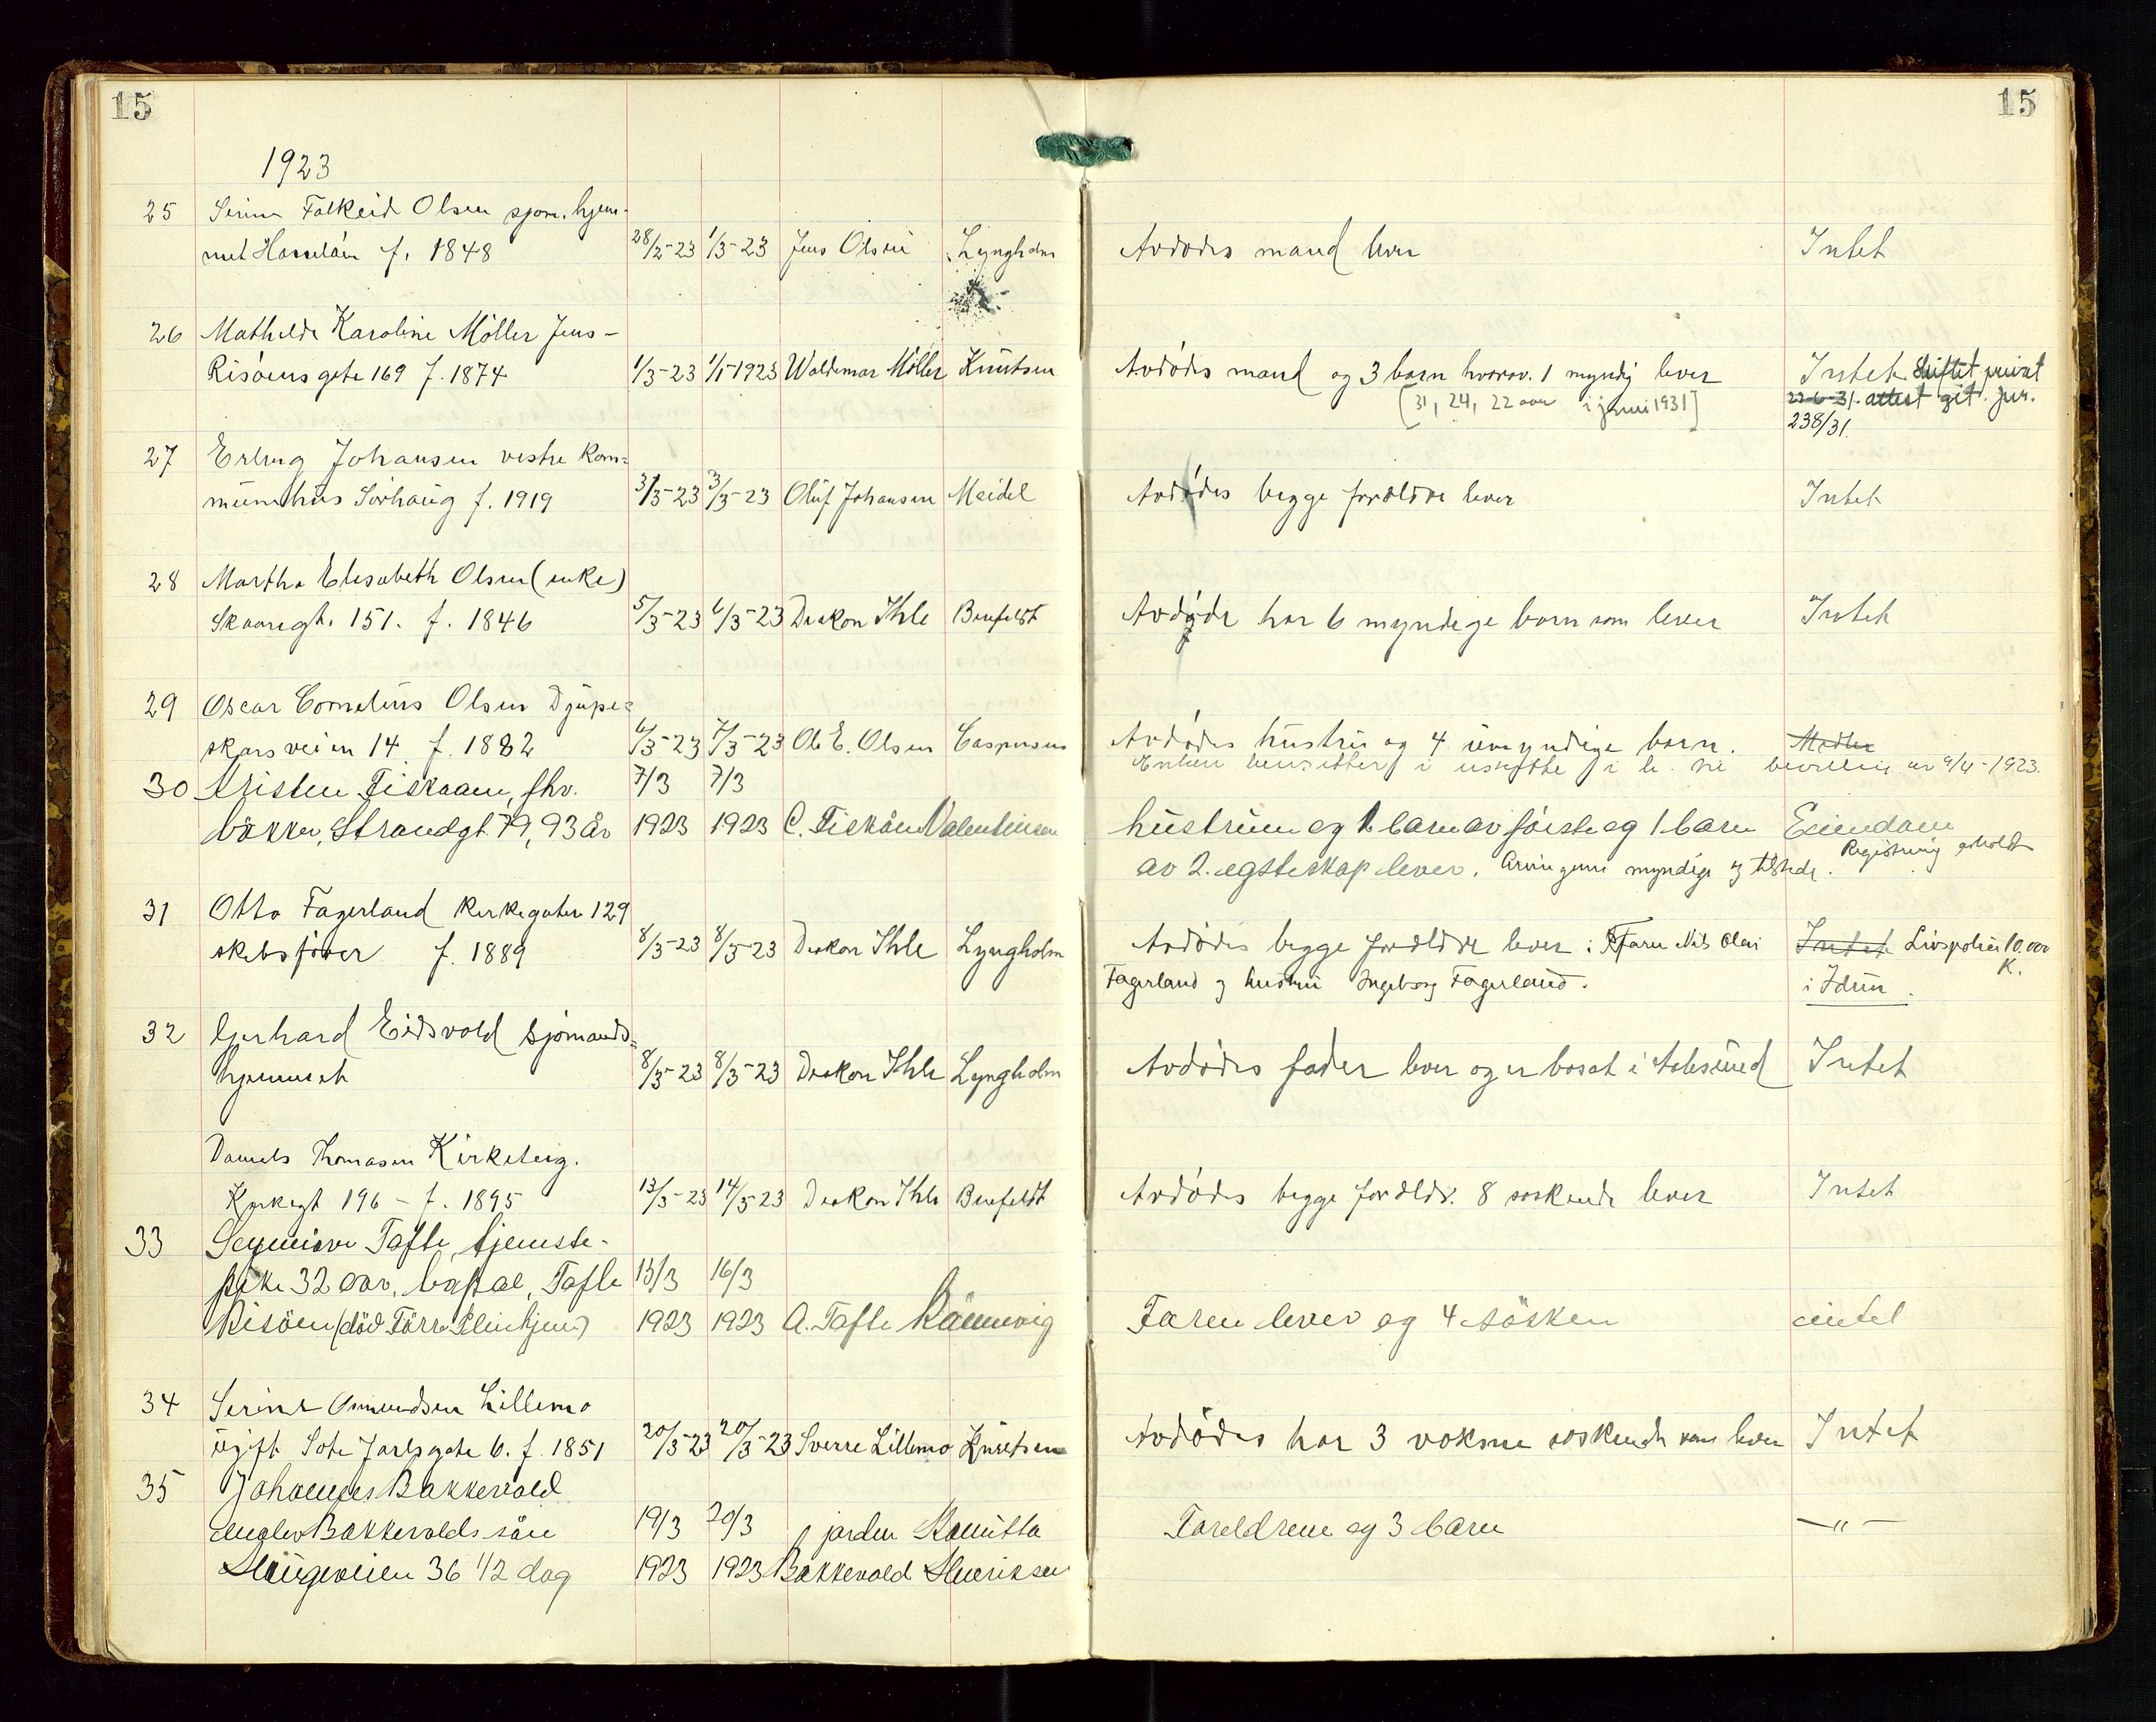 15
15
1923
25 Serine Falkeid Olsen sjom. hjem-
met Hasseløen f. 1848 28/2-23 1/3-23 Jens Olsen Lyngholm Avdødes mand lever Intet
26 Mathilde Karoline Møller Jens-
Risøens gate 169 f. 1874 1/3-23 1/1-1923 Waldemar Møller Knutsen Avdødes mand og 3 barn hvorav. 1 myndig lever Intet Skiftet privat
[31, 24, 22 aar i juni 1931] 22-6-31. attest git. jur.
238/31.
27 Erling Johansen vestre Kom-
munehus Sørhaug f. 1919 3/3-23 3/3-23 Oluf Johansen Meidel Avdødes begge forældre lever Intet
28 Martha Elisabeth Olsen (enke)
Skaaregt. 151. f. 1846 5/3-23 6/3-23 Diakon Ihle Benfeldt Avdøde har 6 myndige barn som lever Intet
29 Oscar Cornelius Olsen Djupe-
skarsveien 14 f. 1882 6/3-23 7/3-23 Ole E. Olsen Caspersen Avdødes hustru og 4 umyndige barn. Midler
Enken hensitter i uskifte i h. til bevilling av 9/4-1923.
30 Kristen Fiskaaen, fhv. 7/3 7/3
bökker, Strandgt. 79, 93 år 1923 1923 C. Fiskåen Valentinsen hustruen og 1 barn av første og 1 barn Eiendom
av 2. egteskap lever. Arvingene myndige og tilstede. Registrering avholdt
31 Otto Fagerland Kirkegaten 129
skibsfører f. 1889 8/3-23 8/3-23 Diakon Ihle Lyngholm Avdødes begge forældre lever: Faren Nils Olai Intet Livspolice 10.000
K.
Fagerland og hustru Ingeborg Fagerland. i Idun.
32 Gerhard Eidsvold sjømands-
hjemmet 8/3-23 8/3-23 Diakon Ihle Lyngholm Avdødes fader lever og er bosat i Aalesund Intet
Daniels Thomasen Kirkesteig.
Kirkegt 196 - f. 1895 13/3-23 14/3-23 Diakon Ihle Benfeldt Avdødes begge forældr. 8 søskende lever Intet
33 Tafte, tjeneste-
pike 32 aar, Tafte 15/3 16/3
Risöen (död Pleiehjem) 1923 1923 A. Tafte Rännevig Faren lever og 4 søsken intet
34 Serine Omundsen Lillemo
ugift Sote Jarlsgate 6. f. 1851 20/3-23 20/3-23 Sverre Lillemo Knutsen Avdødes har 3 voksne søskende som lever Intet
35 Johannes Bakkevold
Bakkevolds søn 19/3 20/3 jordm Foreldrene og 3 barn —"—
Haugeveien 36 1/2 dag 1923 1923 Bakkevold Henriksen